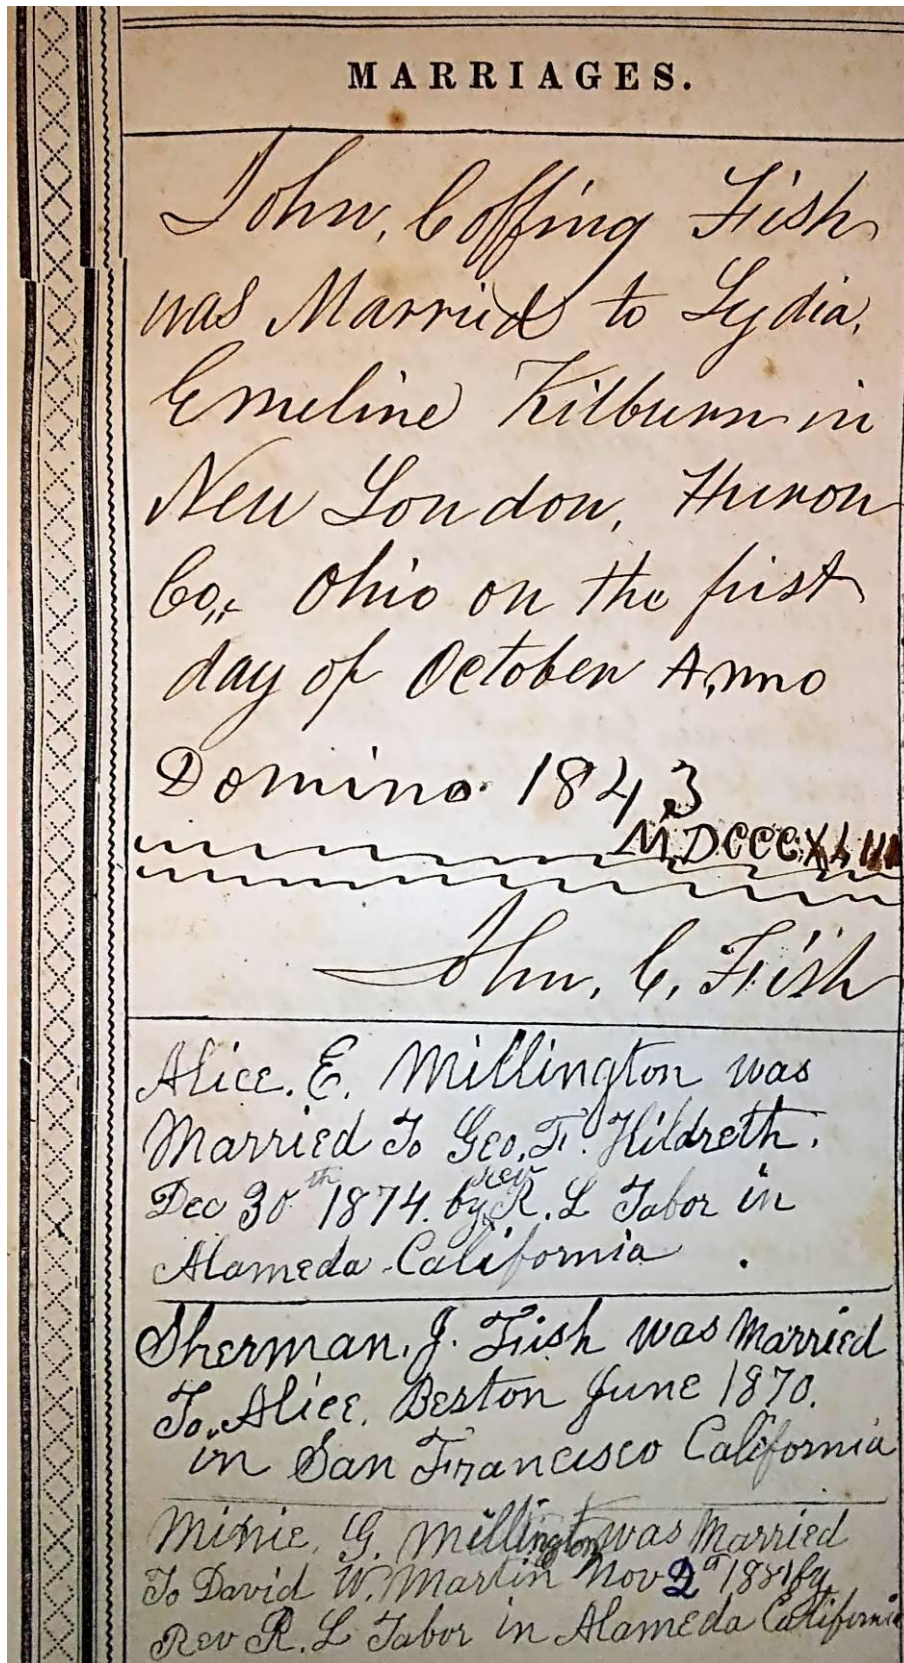 MARRIAGES.
John, Coffing Fish
was Married to Lydia,
Emeline Kilburn in
New London, Huron
Co,, Ohio on the first
day of October Anno
Domino 1843
M,DCCCXLIII
John, C, Fish
Alice. E. Millington was
Married To Geo. F. Hildreth.
rev
Dec 30th 1874. by R. L Tabor in
Alameda California.
Sherman. J. Fish was Married
To Alice. Beston June 1870.
in San Francisco California
Minie. G. Millington was Married
To David W. Martin Nov 2 1881 by
Rev R. L Tabor in Alameda California